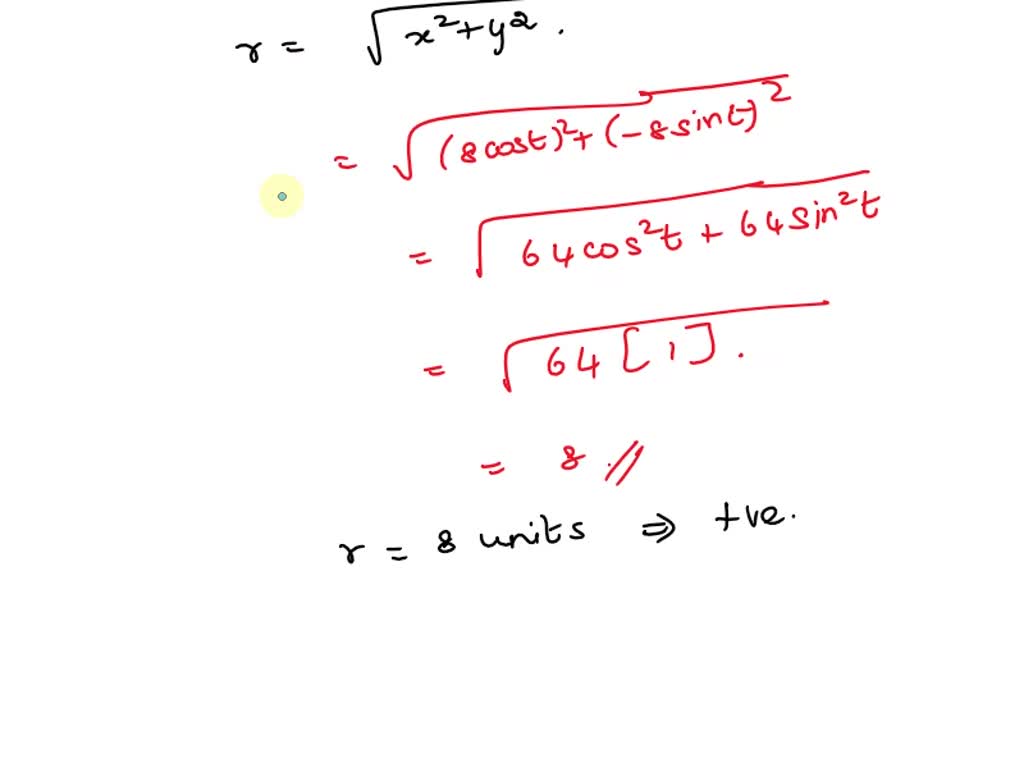 r = √x²+y² .
= √(8cost)²+(-8sint)²
= √64cos²t + 64sin²t
= √64[1] .
= 8 //
r = 8 units ⇒ +ve.